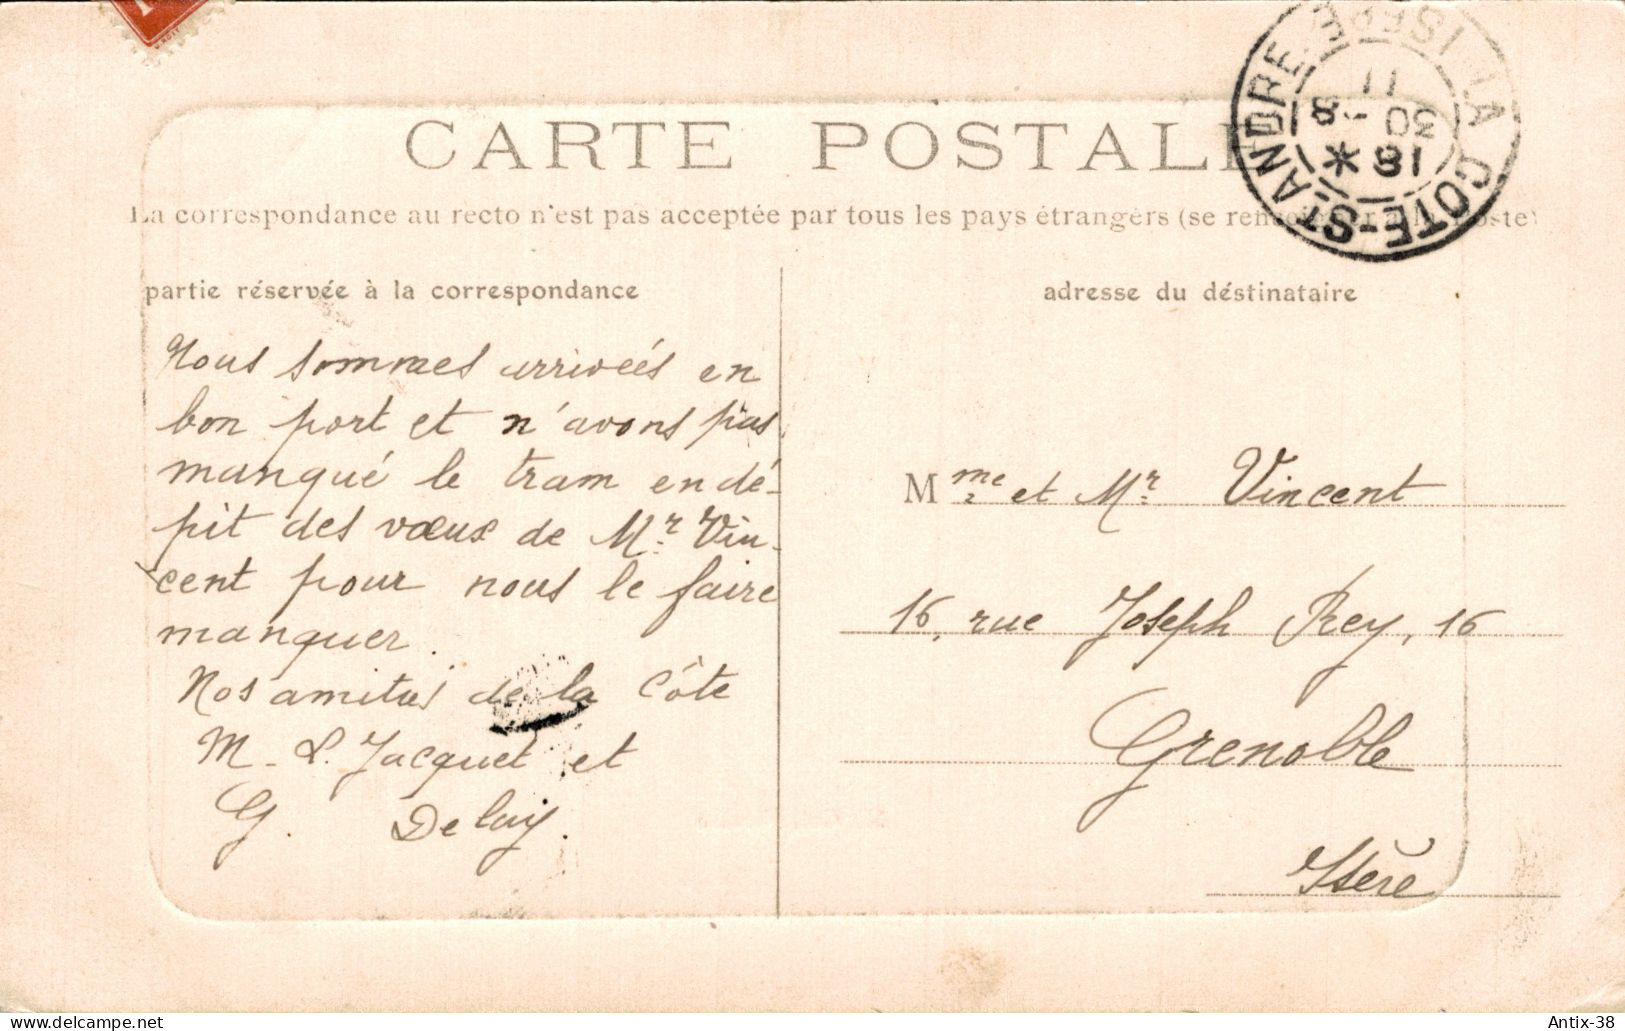 CARTE POSTALE
La correspondance au recto n'est pas acceptée par tous les pays étrangers (se renseigner à la poste)
partie réservée à la correspondance
Nous sommes arrivées en
bon port et n'avons pas
manqué le tram en dé-
pit des vœux de Mr. Vin-
cent pour nous le faire
manquer.
Nos amitiés de la Côte
M. L. Jacquet et
G. Delay.
adresse du déstinataire
Mme et Mr. Vincent
16, rue Joseph Rey, 16
Grenoble
Isère
LA COTE-ST-ANDRE
ISERE
18 *
30 - 8
11
Antix-38